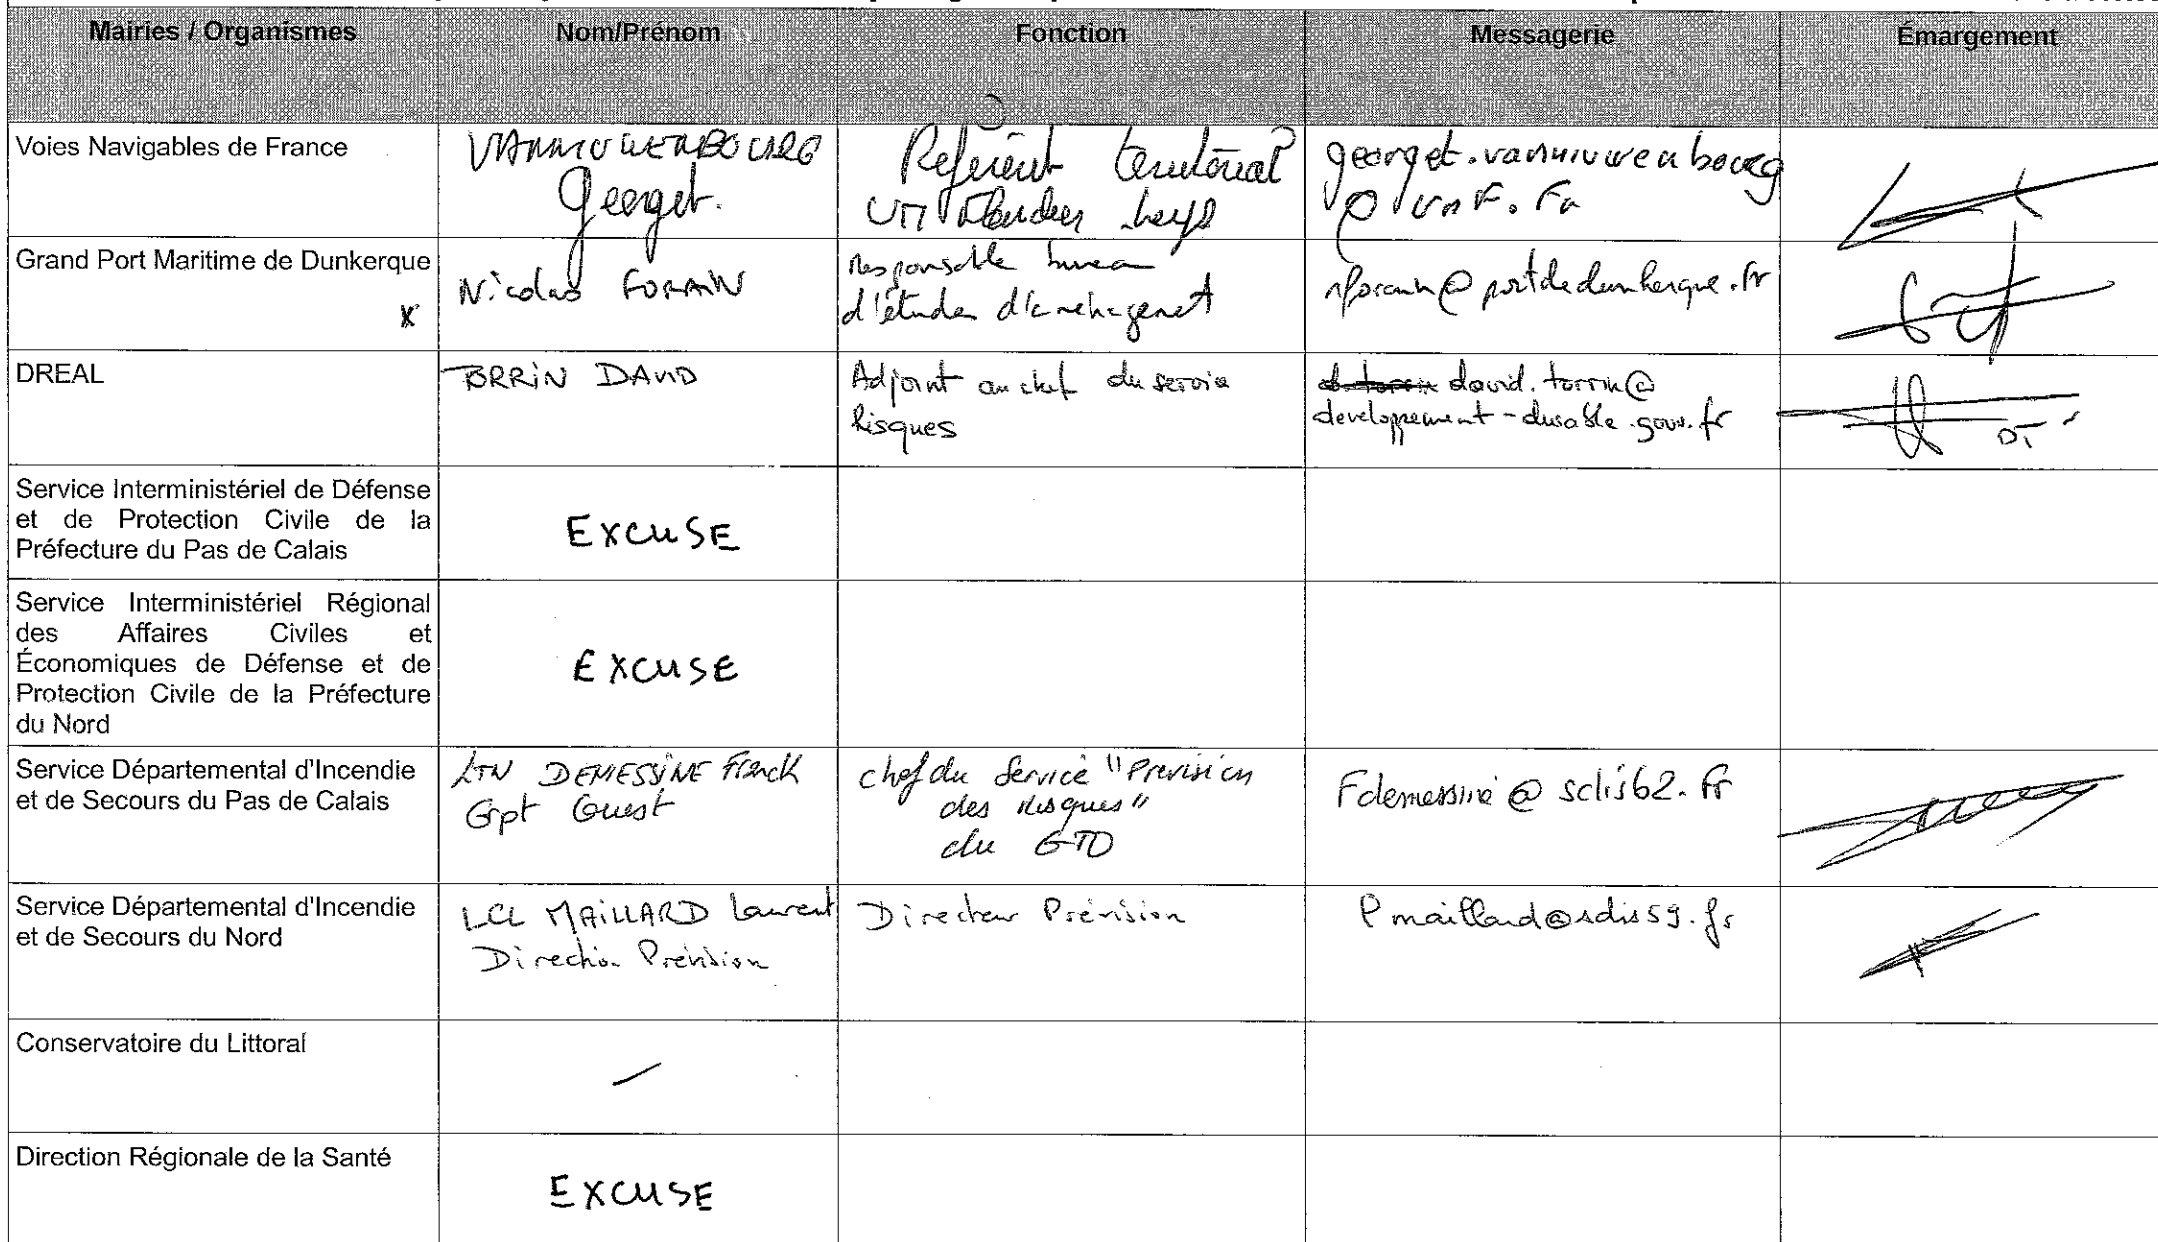 Mairies / Organismes Nom/Prénom Fonction Messagerie Émargement
Voies Navigables de France
Georget.
Référent territorial
georget.
@ vnf.fr
Grand Port Maritime de Dunkerque
x
Nicolas FORAIN
responsable bureau
d'études d'aménagement
nforain@portdedunkerque.fr
DREAL
TORRIN DAVID
Adjoint au chef du service
Risques
david.torrin@
developpement-durable.gouv.fr
DT
Service Interministériel de Défense
et de Protection Civile de la
Préfecture du Pas de Calais
EXCUSE
Service Interministériel Régional
des Affaires Civiles et
Économiques de Défense et de
Protection Civile de la Préfecture
du Nord
EXCUSE
Service Départemental d'Incendie
et de Secours du Pas de Calais
LTN DEMESSINE Franck
Grpt Ouest
chef du Service "Prevision
des risques"
du GTO
Fdemessine@sdis62.fr
Service Départemental d'Incendie
et de Secours du Nord
LCL MAILLARD Laurent
Direction Prévision
Directeur Prévision
lmaillard@sdis59.fr
Conservatoire du Littoral
Direction Régionale de la Santé
EXCUSE